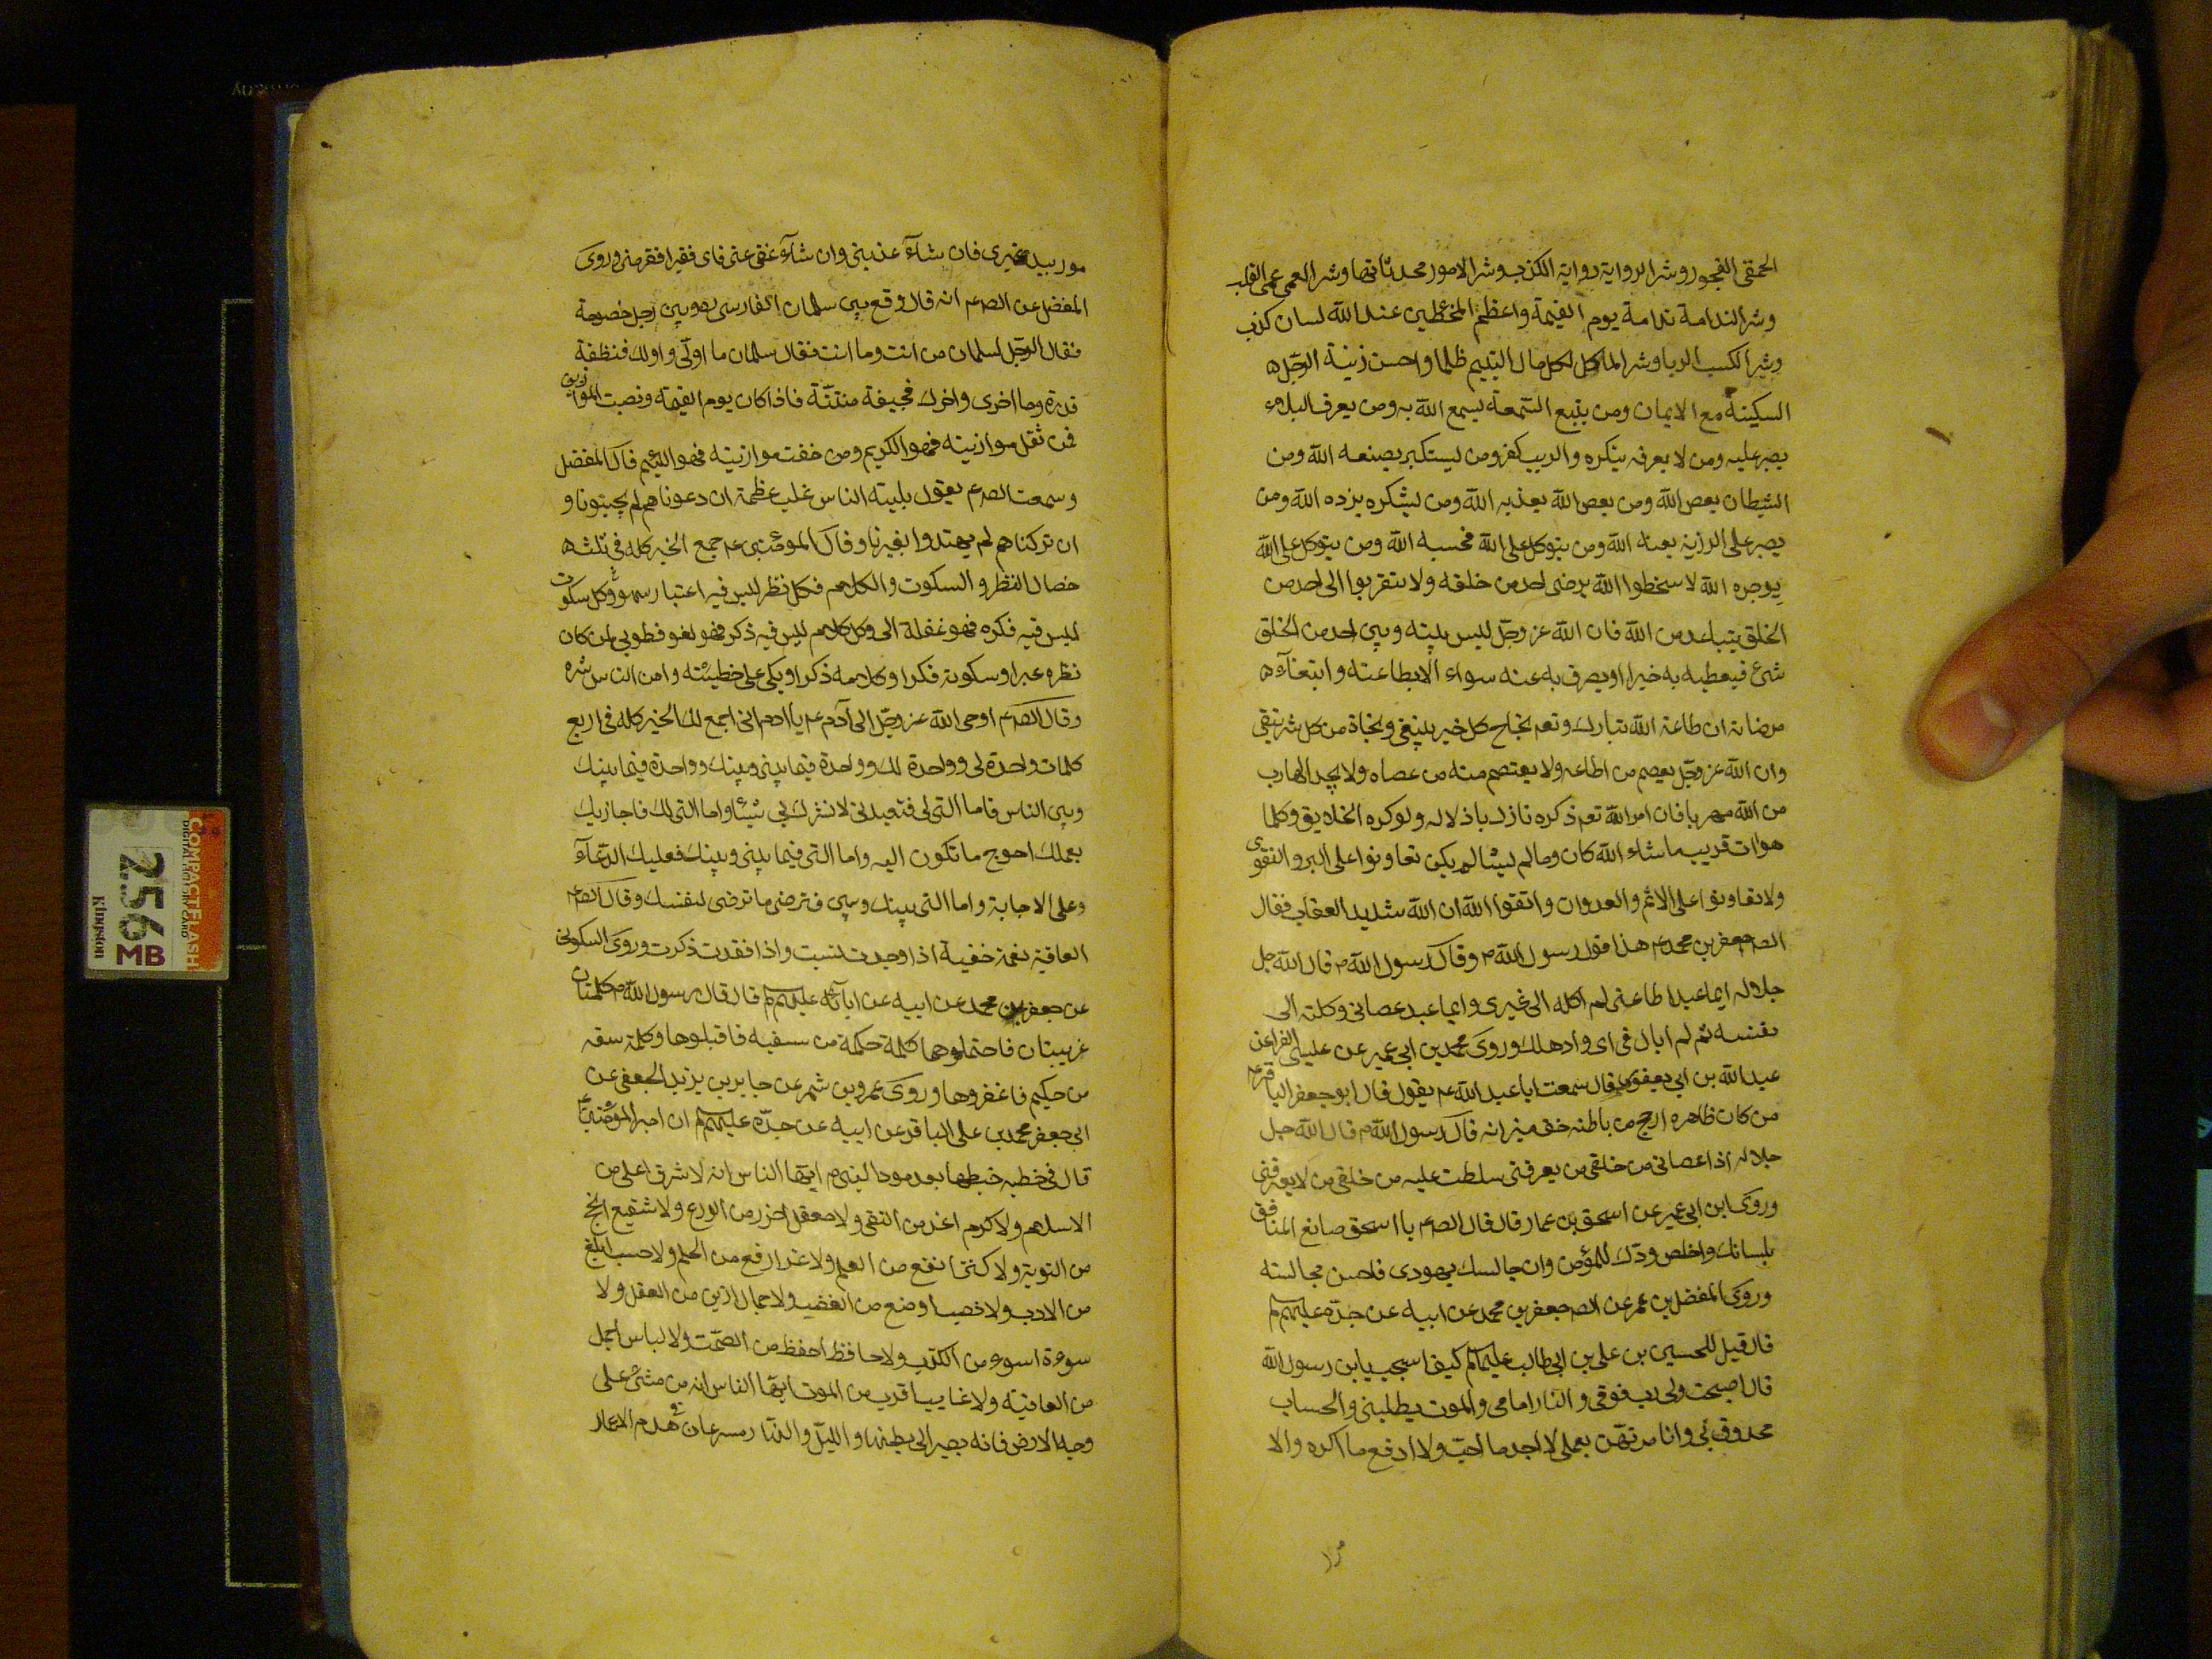 الحمقى الفجور وشر الرواية رواية الكذب وشر الامور محدثاتها وشر العمى عمى القلب
وشر الندامة ندامة يوم القيمة واعظم المخطين عند الله لسان كذب
وشر الكسب الربا وشر الماكل اكل مال اليتيم ظلما واحسن زينة الرجل
السكينة مع الايمان ومن يتبع السمعة يسمع الله به ومن يعرف البلاء
يصبر عليه ومن لا يعرفه ينكره والريب كفر ومن يستكبر يضعه الله ومن
الشيطان يعص الله ومن يعص الله يعذبه الله ومن يشكره يزده الله ومن
يصبر على الرزية يعنه الله ومن يتوكل على الله فحسبه الله ومن يتوكل على الله
يوجره الله لا تسخطوا الله برضى احد من خلقه ولا تتقربوا الى احد من
الخلق يتباعد من الله فان الله عز وجل ليس بينه وبين احد من الخلق
شئ فيعطيه به خيرا او يصرف به عنه سواء الا بطاعته وابتغاء
مرضاته ان طاعة الله تبارك وتعم نجاح كل خير يبتغى ونجاة من كل شر يتقى
وان الله عز وجل يعصم من اطاعه ولا يعتصم منه من عصاه ولا يجد الهارب
من الله مهربا فان امر الله تعم ذكره نازل باذلاله ولو كره الخلايق وكلما
هوات قريب ما شاء الله كان وما لم يشا لم يكن تعاونوا على البر والتقوى
ولا تعاونوا على الاثم والعدوان واتقوا الله ان الله شديد العقاب فقال
الصم جعفر بن محمد ع هذا قول رسول الله ص وقال رسول الله ص قال الله جل
جلاله ايما عبد اطاعنى لم اكله الى غيرى وايما عبد عصانى وكلته الى
نفسه ثم لم ابال فى اى واد هلك وروى محمد بن ابى عمير عن عيسى الفراعن
عبد الله بن ابى يعفور قال سمعت ابا عبد الله ع يقول قال ابو جعفر الباقر ع
من كان ظاهره ارجح من باطنه خف ميزانه قال رسول الله ص قال الله جل
جلاله اذا عصانى من خلقى من يعرفنى سلطت عليه من خلقى من لا يعرفنى
وروى ابن ابى عمير عن اسحق بن عمار قال قال الصم يا اسحق صانع المنافق
بلسانك واخلص ودك للمؤمن وان جالسك يهودى فاحسن مجالسته
وروى المفضل بن عمر عن الصم جعفر بن محمد عن ابيه عن جده عليهم
قال قيل للحسين بن على بن ابى طالب عليهما كيف اصبحت يابن رسول الله
قال اصبحت ولى رب فوقى والنار امامى والموت يطلبنى والحساب
محدوق بى وانا مرتهن بعملى لا اجد ما احب ولا ادفع ما اكره والا
مور بيد غيرى فان شآء عذبنى وان شآء عفى عنى فاى فقير افقر منى وروى
المفضل عن الصم ع انه قال وقع بين سلمان الفارسى ره وبين رجل خصومة
فقال الرجل لسلمان من انت وما انت فقال سلمان ما اولى واولك فنظفة
قذرة وما اخرى واخرك فجيفة منتنة فاذا كان يوم القيمة ونصبت الموازين
فمن ثقل موازينه فهو الكريم ومن خفت موازينه فهو اللئيم قال المفضل
وسمعت الصم ع يقول بليته الناس غلب عظمة ان دعوناهم لم يجيبونا و
ان تركناهم لم يهتدوا بغيرنا وقال الموءمنين ع جمع الخير كله فى ثلثه
خصال النظر والسكوت والكلام فكل نظر ليس فيه اعتبار سهو وكل سكوت
ليس فيه فكره فهو غفلة الى وكل كلام ليس فيه ذكر فهو لغو فطوبى لمن كان
نظره عبرا وسكوته فكرا وكلامه ذكرا وبكى على خطيئته وامن الناس شره
وقال الصم ع اوحى الله عز وجل الى آدم ع يا ادم انى اجمع لك الخير كله فى اربع
كلمات واحدة لى وواحدة لك وواحدة فيما بينى وبينك وواحدة فيما بينك
وبين الناس فاما التى لى فتعبدنى لا تشرك بى شيئا واما التى لك فاجازيك
بعملك احوج ما تكون اليه واما التى فيما بينى وبينك فعليك الدعآء
وعلى الاجابة واما التى بينك وبين فترضى ما ترضى لنفسك وقال الصم ع
العافية نعمة خفية اذا وجدت نسيت واذا فقدت ذكرت وروى السكونى
عن جعفر بن محمد عن ابيه عن ابائه عليهم قال قال رسول الله ص كلمتان
غريبتان فاحتملوهما كلمة حكمة من سفيه فاقبلوها وكلمة سفه
من حكيم فاغفروها وروى عمرو بن شمر عن جابر بن يزيد الجعفى عن
ابى جعفر محمد بن على الباقر عن ابيه عن جده عليهم ان امير المؤمنين
قال فى خطبه خطبها بعد موت النبى ص ايها الناس انه لا شرف اعلى من
الاسلام ولا كرم اعز من التقى ولا معقل احزر من الورع ولا شفيع انجح
من التوبة ولا كنز انفع من العلم ولا عز ارفع من الحلم ولا حسب ابلغ
من الادب ولا نصب اوضع من الغضب ولا جمال ازين من العقل ولا
سوءة اسوء من الكذب ولا حافظ احفظ من الصمت ولا لباس اجمل
من العافيته ولا غايب اقرب من الموت ايها الناس انه من مشى على
وجه الارض فانه يصير الى بطنها والليل والنهار مسرعان فى هدم الاعمار
COMPACTFLASH
256
MB
Kingston